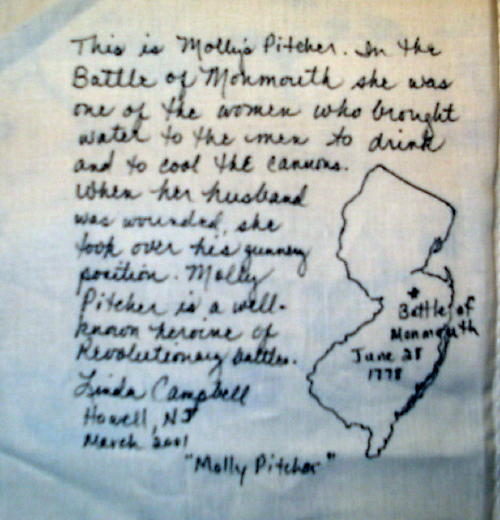 This is Molly's Pitcher. In the
Battle of Monmouth she was
one of the women who brought
water to the men to drink
and to cool the cannons.
When her husband
was wounded, she
took over his gunnery
position. Molly
Pitcher is a well-
known heroine of
Revolutionary battles.
Linda Campbell
Howell, NJ
March 2001
"Molly Pitcher"
Battle of
Monmouth
June 28
1778